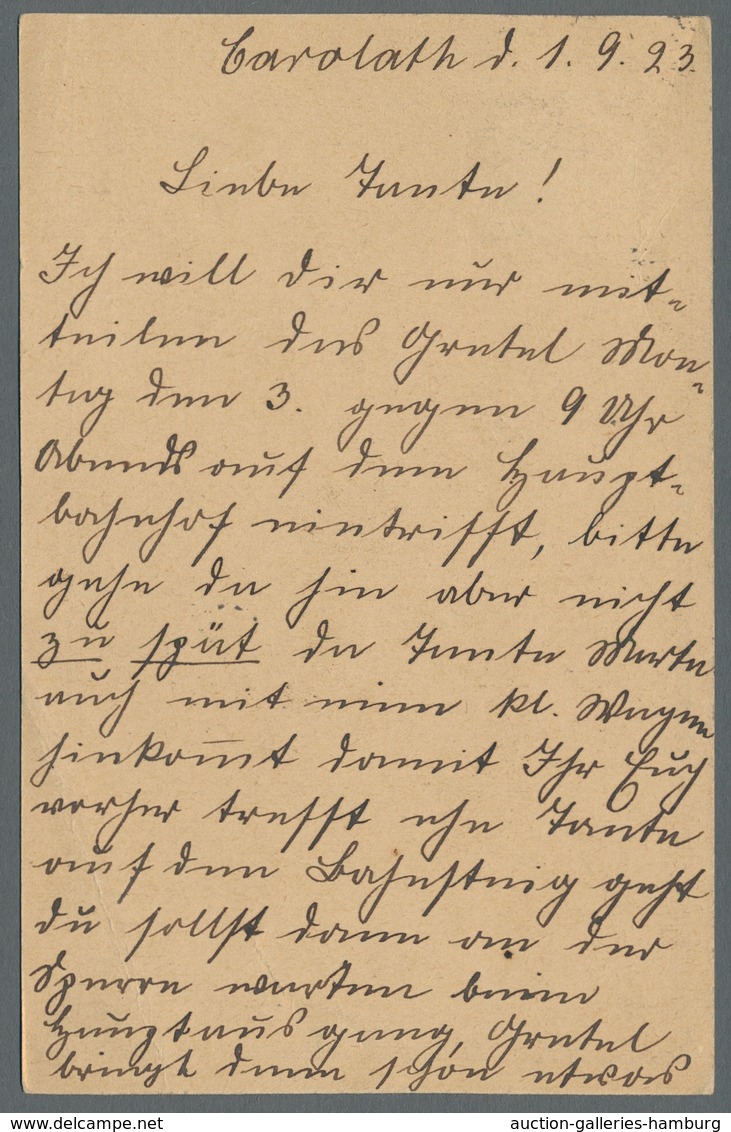 Carolath d. 1. 9. 23.
Liebe Tante!
Ich will dir nur mit-
teilen das Gretel Mon-
tag den 3. gegen 9 Uhr
Abends auf dem Haupt-
bahnhof eintrifft, bitte
gehe du hin aber nicht
zu spät da Tante Marta
auch mit einen kl. Wagen
hinkommt damit Ihr Euch
vorher trefft ehe Tante
auf den Bahnsteig geht
du sollst dann an der
Sperre warten beim
Hauptausgang, Gretel
bringt denn schon etwas
www.delcampe.net
auction-galleries-hamburg